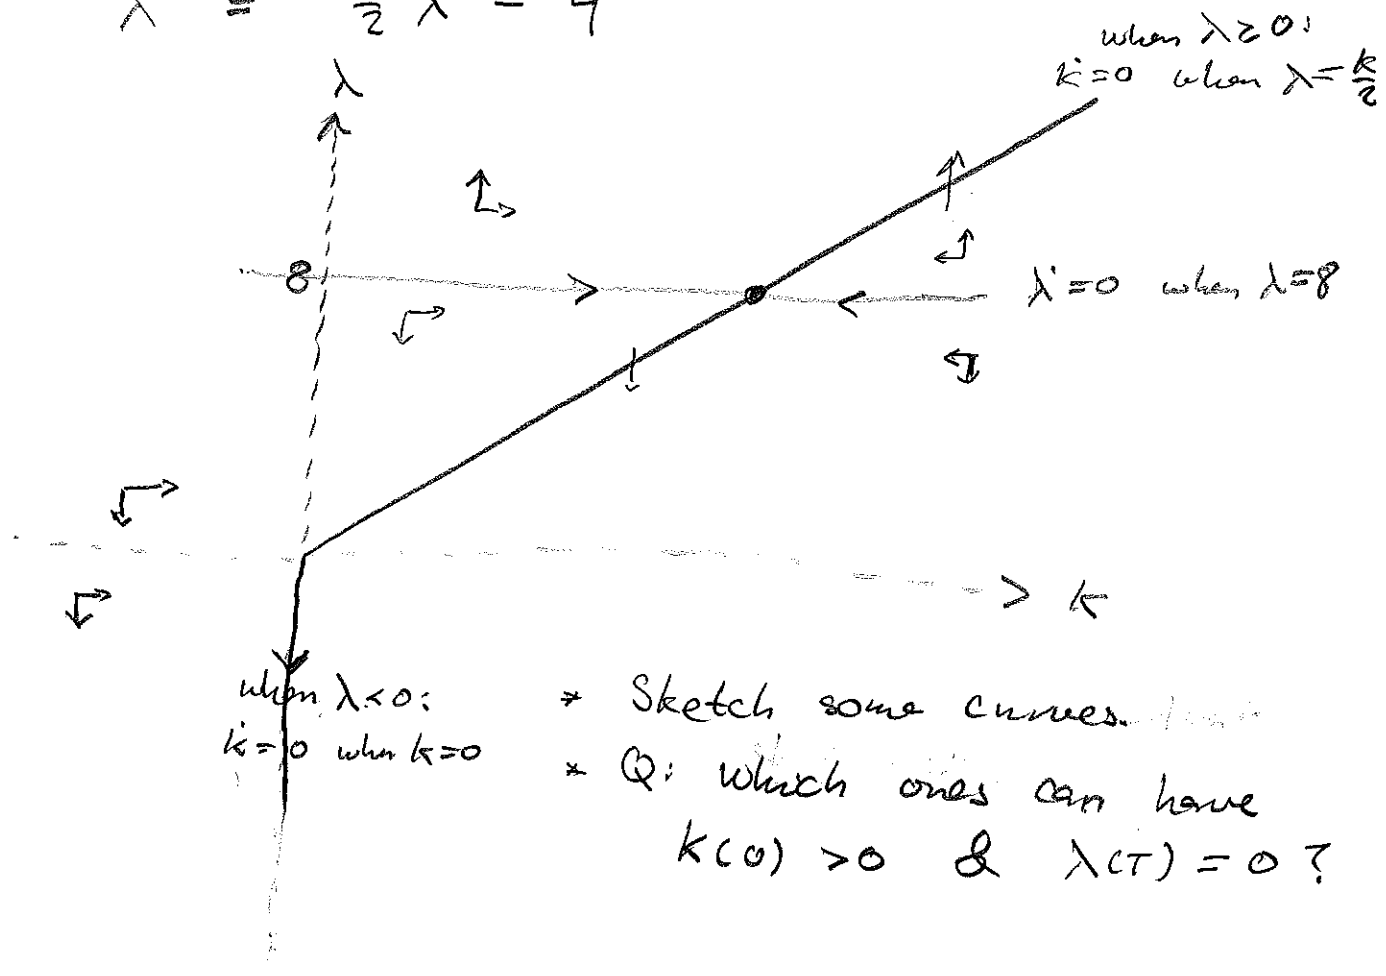 λ̇ = ½ λ - 4
when λ≥0:
k̇=0 when λ=k/2
λ
8
λ̇=0 when λ=8
k
when λ<0:
k̇=0 when k=0
* Sketch some curves.
* Q: which ones can have
k(0) >0 & λ(T) = 0 ?